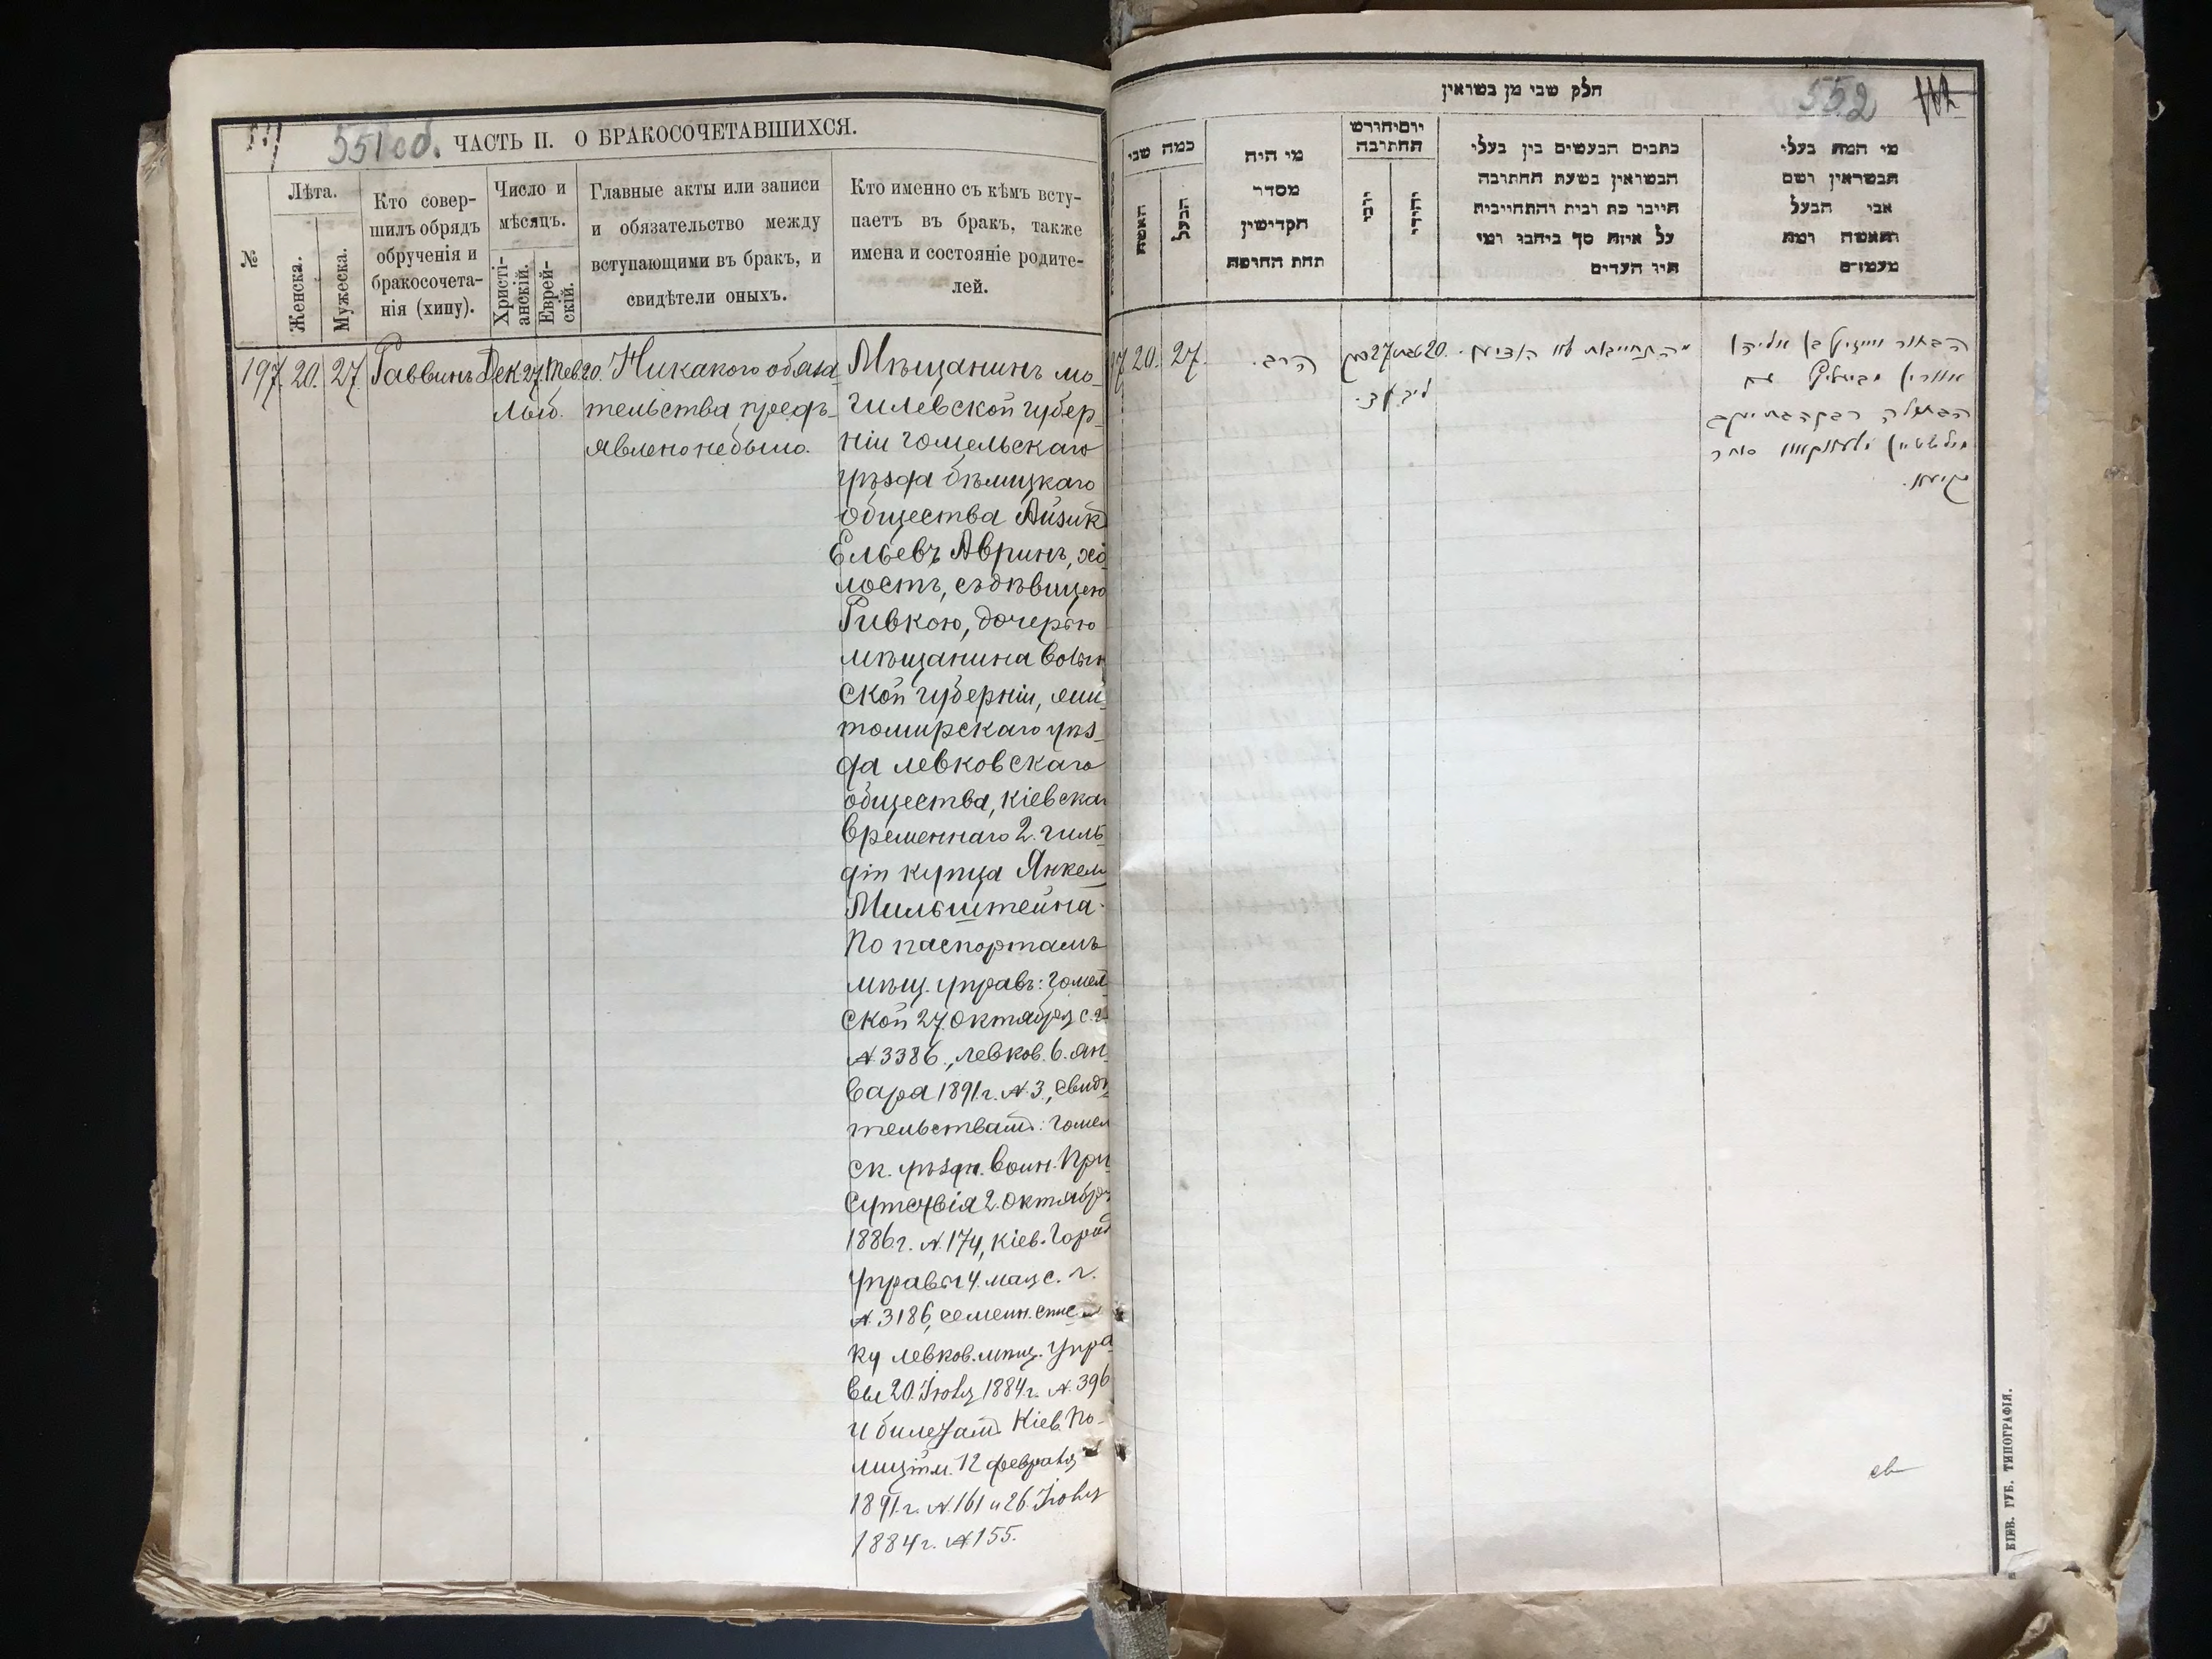 551 об. ЧАСТЬ II. О БРАКОСОЧЕТАВШИХСЯ.
№
Лѣта.
Женска.
Мужеска.
Кто совер-
шилъ обрядъ
обрученія и
бракосочета-
нія (хипу).
Число и
мѣсяцъ.
Христі-
анскій.
Еврей-
скій.
Главные акты или записи
и обязательство между
вступающими въ бракъ, и
свидѣтели оныхъ.
Кто именно съ кѣмъ всту-
паетъ въ бракъ, также
имена и состояніе родите-
лей.
197. 20. 27. Раввинъ Дек. 27. Тев. 20. Никакого обяза-
тельства предъ-
явлено не было.
Мѣщанинъ мо-
гилевской губер-
ніи гомельскаго
уѣзда бѣлицкаго
общества Айзикъ
Ельевъ Авринъ, хо-
лостъ, съ дѣвицею
Ривкою, дочерью
мѣщанина волын
ской губерніи, жи-
томирскаго уѣз-
да левковскаго
общества, кіевска
временнаго 2. гиль-
діи купца Янкеля
Мильштейна.
По паспортамъ
мѣщ. управъ: гомел
ской 27. октября с. г.
№ 3386., левков. 6. ян-
варя 1891 г. № 3., свидѣ-
тельствамъ: гомел
ск. уѣздн. воин. При-
сутствія 2. октября
1886 г. № 174, кіев. Город
Управы 4. мая с. г.
№ 3186, семейн. спис
ку левков. мѣщ. Упра
вы 20. Іюля 1884 г. № 396
и билетамъ Кіев. По-
лиціи. 12 февраля
1891 г. № 161 и 26. Іюля
1884 г. № 155.
חלק שני מן נשואין
552
כמה שני
האשה
הבעל
מי היה
מסדר
הקדישין
תחת החופה
יום וחודש
החתונה
יוני
יהודי
כתבים הנעשים בין בעלי
הנשואין בשעת החתונה
חייבו כת ובית והתחייבות
על איזה סך ניתנו ומי
היו העדים
מי המה בעלי
הנשואין ושם
אבי הבעל
והאשה ומה
מעמדם
20. 27. הרב.
27
20.
הבחור אייזיק בן אליהו
אוורין
הבתולה רבקה בת יעקב
מילשטיין
КІЕВ. ГУБ. ТИПОГРАФІЯ.